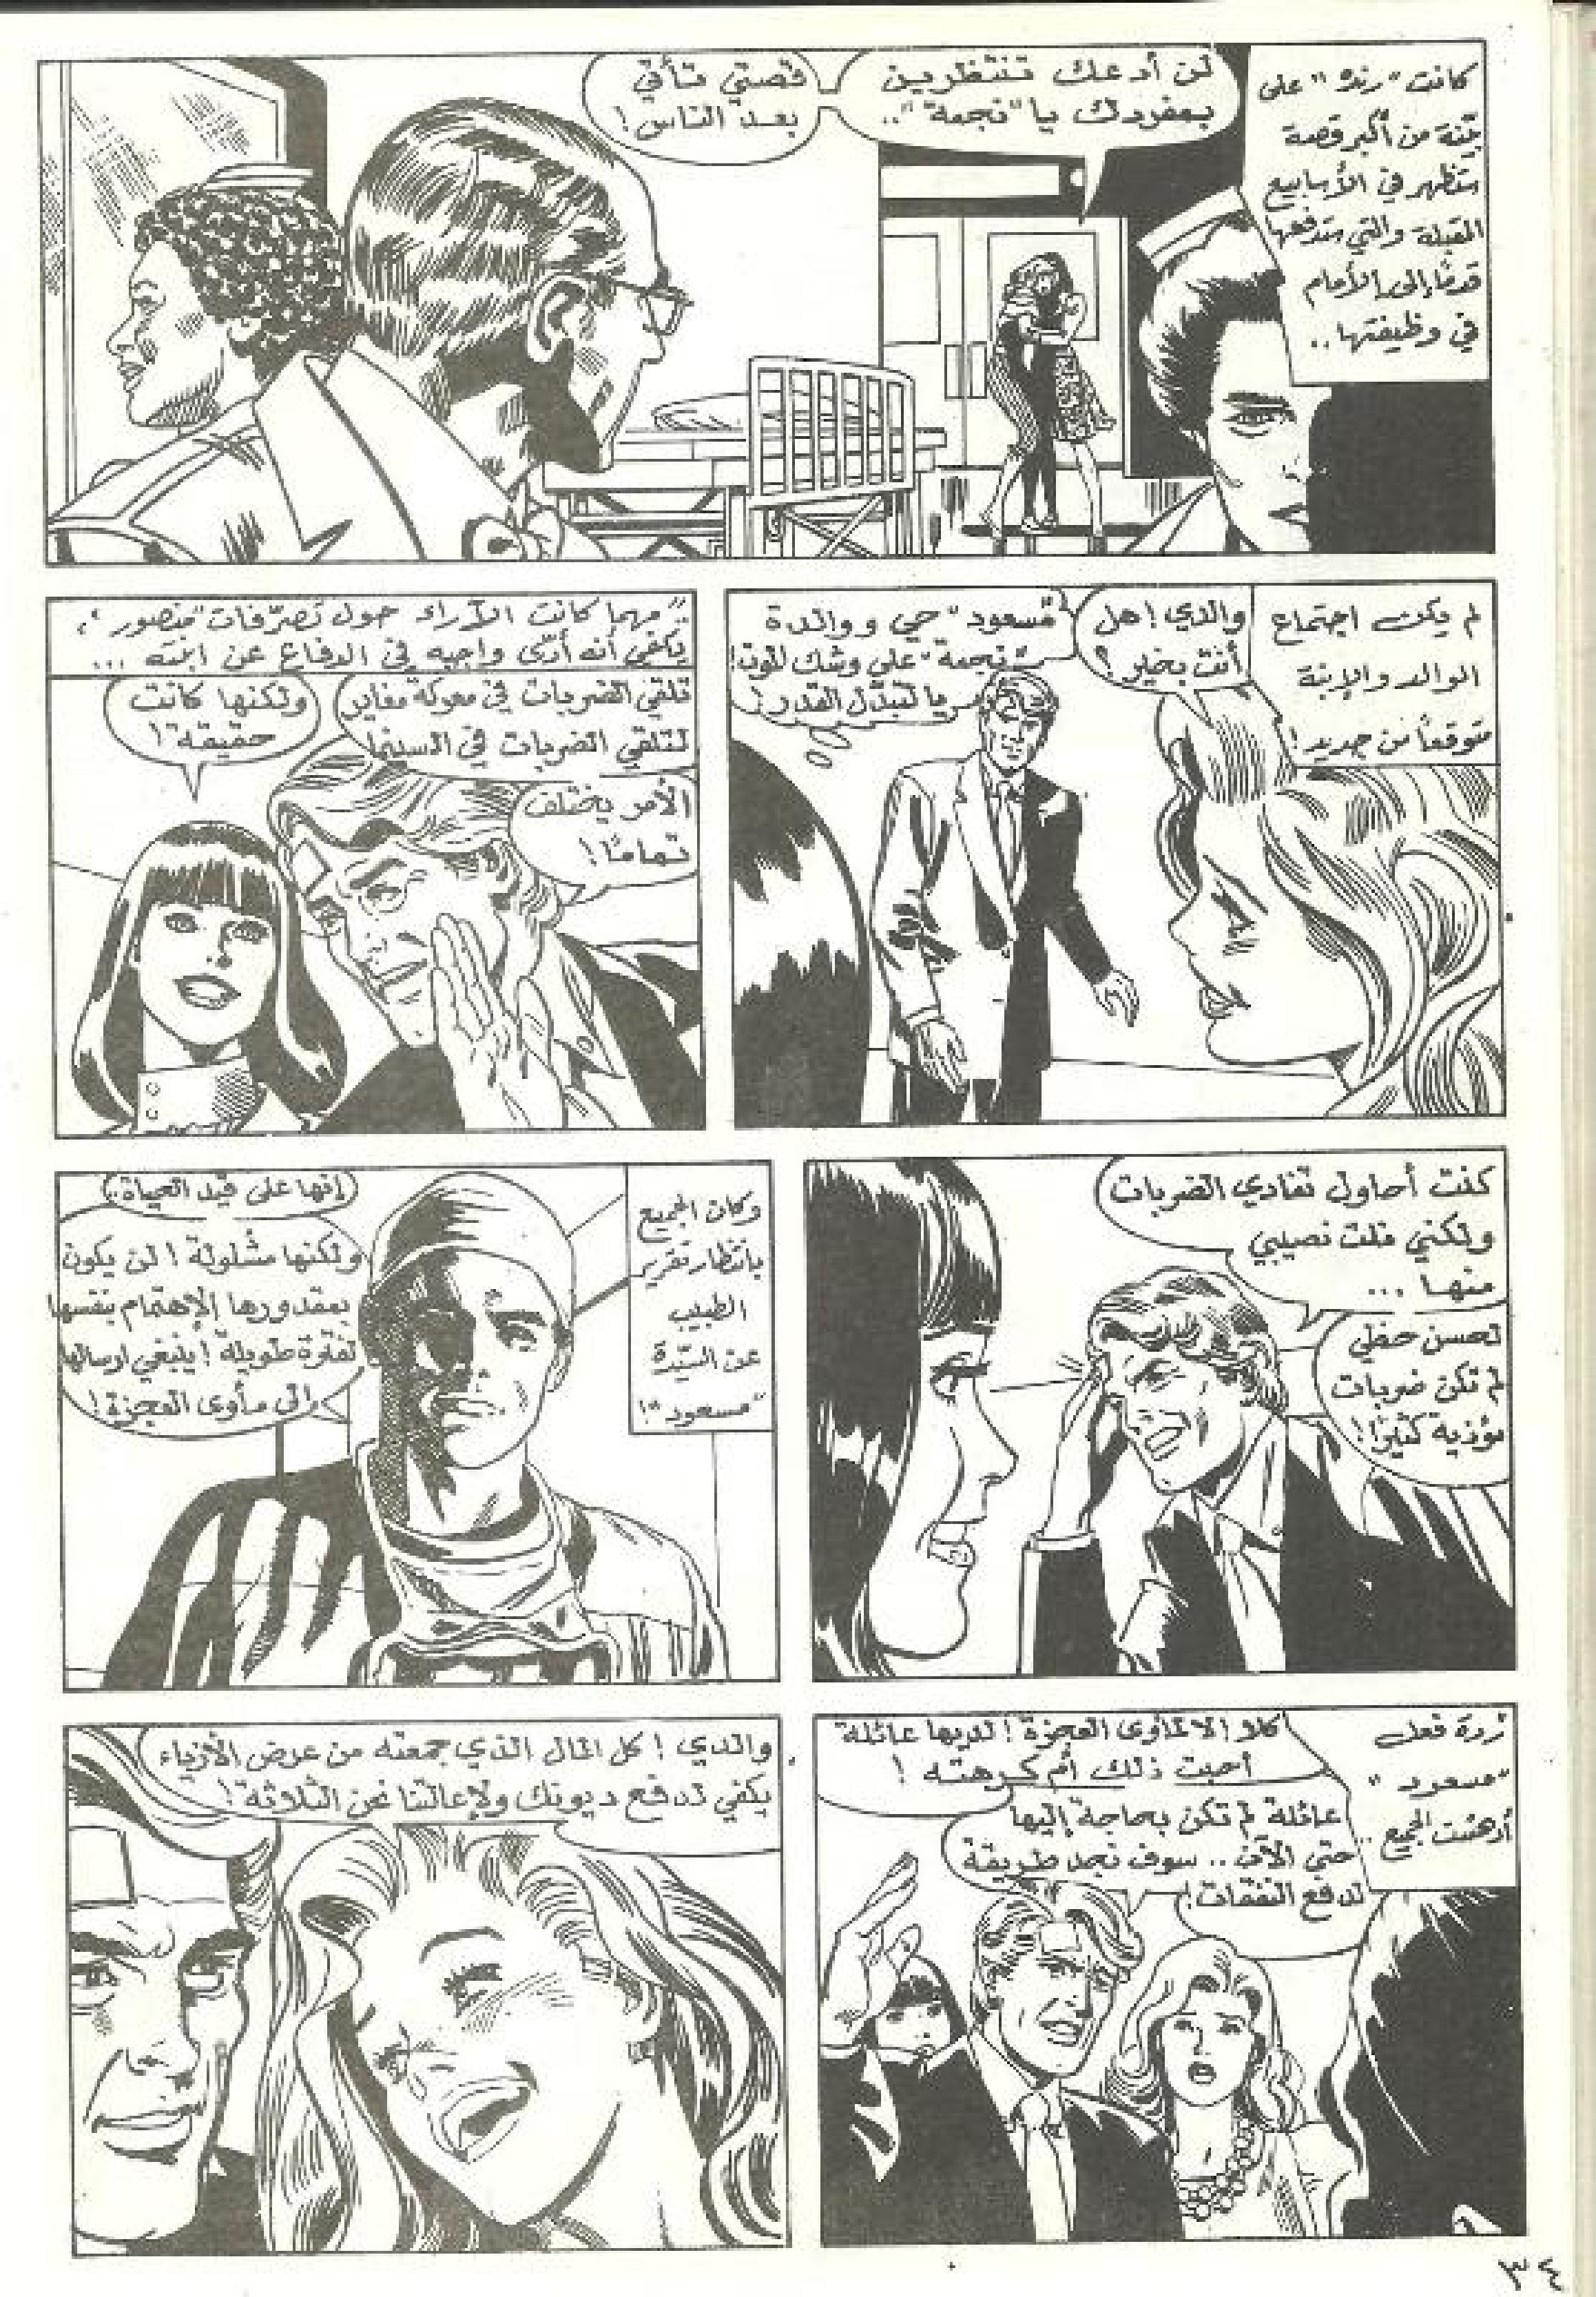 كانت "رندة" على
بيّنة من أكبر قصة
ستظهر في الأسابيع
المقبلة والتي ستدفعها
قدمًا إلى الأمام
في وظيفتها..
لن أدعك تنتظرين
بمفردك يا "نجمة"..
قصتي تأتي
بعد الناس!
لم يكن اجتماع
الوالد والإبنة
متوقعاً من جديد!
والدي! هل
أنت بخير؟
"مسعود" حي و والدة
"نجمة" على وشك الموت!
يا لتبدّل القدر!
"مهما كانت الآراء حول تصرّفات "منصور"،
يكفي أنه أدّى واجبه في الدفاع عن ابنته...
تلقي الضربات في معركة مغاير
لتلقي الضربات في السينما
الأمر يختلف
تمامًا!
ولكنها كانت
حقيقة!
كنت أحاول تفادي الضربات
ولكني نلت نصيبي
منها...
لحسن حظي
لم تكن ضربات
مؤذية كثيرًا!
وكان الجميع
بانتظار تقرير
الطبيب
عن السيّدة
"مسعود"!
إنها على قيد الحياة..
ولكنها مشلولة! لن يكون
بمقدورها الإهتمام بنفسها
لفترة طويلة! ينبغي ارسالها
إلى مأوى العجزة!
ردة فعل
"مسعود"
أدهشت الجميع..
كلا! إلا مأوى العجزة! لديها عائلة
أحبت ذلك أم كرهته!
عائلة لم تكن بحاجة إليها
حتى الآن.. سوف نجد طريقة
لدفع النفقات!
والدي! كل المال الذي جمعته من عرض الأزياء
يكفي لدفع ديونك ولإعالتنا نحن الثلاثة!
٣٤